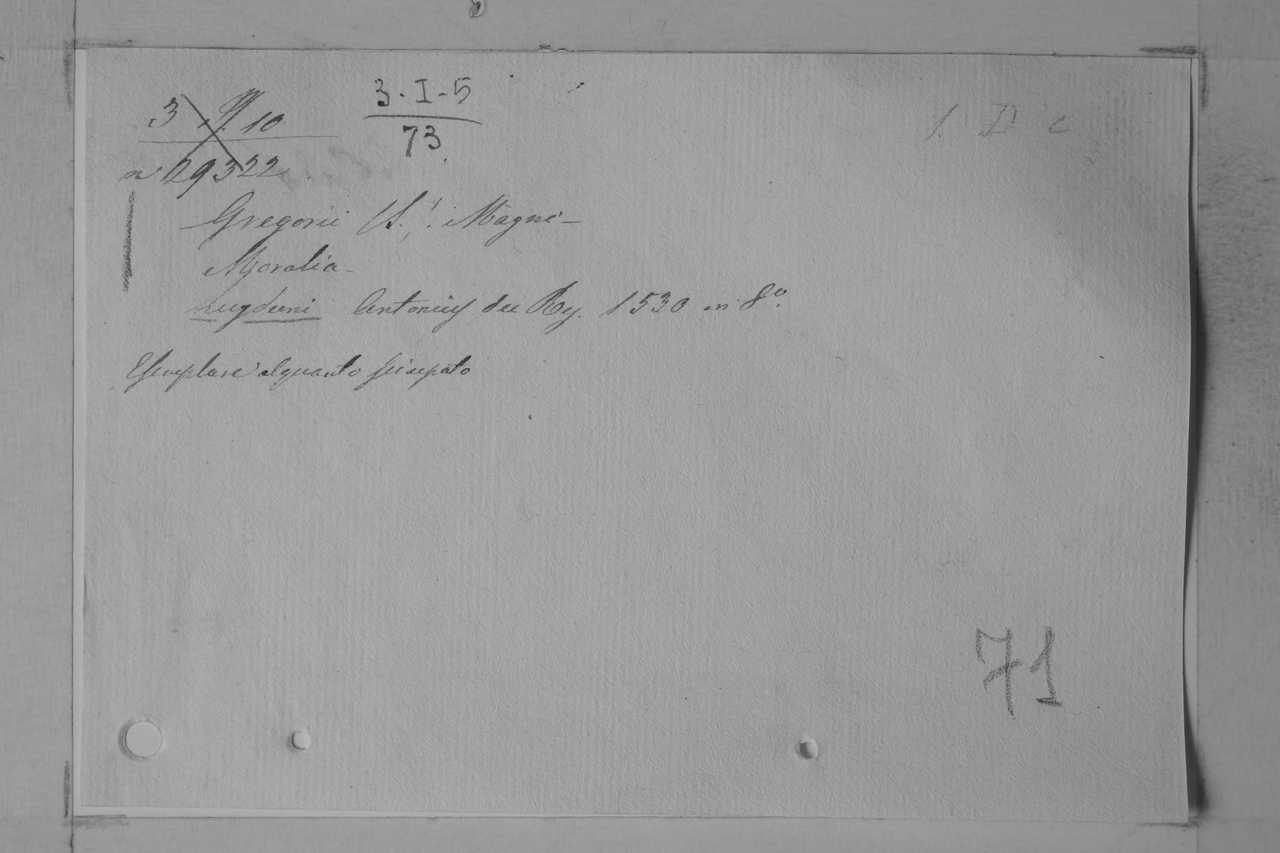 3 10
3-I-5
73
1. D c
n° 29322
Gregorii (S.) Magni
Moralia
Lugduni Antonius du Ry. 1530 in 8°.
Esemplare alquanto sciupato
71